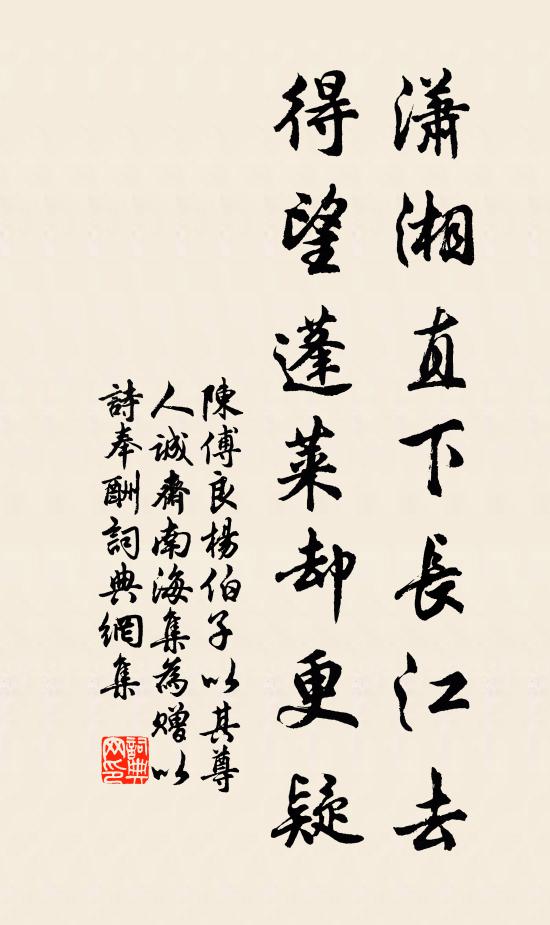 瀟湘直下長江去
得望蓬萊却更疑
陳傅良楊伯子以其尊
人誠齋南海集為贈以
詩奉酬詞典網集
詞典
网印